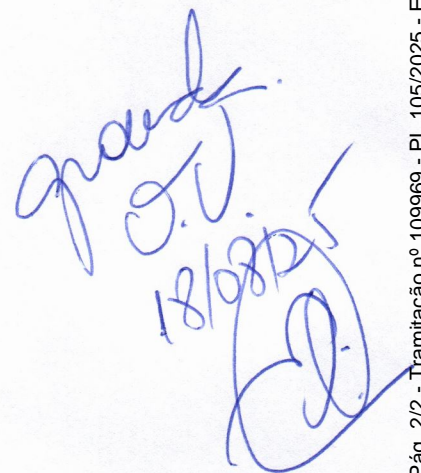 aprovado.
O.U.
18/08/25
Pág. 2/2 - Tramitação nº 109969 - PL 105/2025 - E